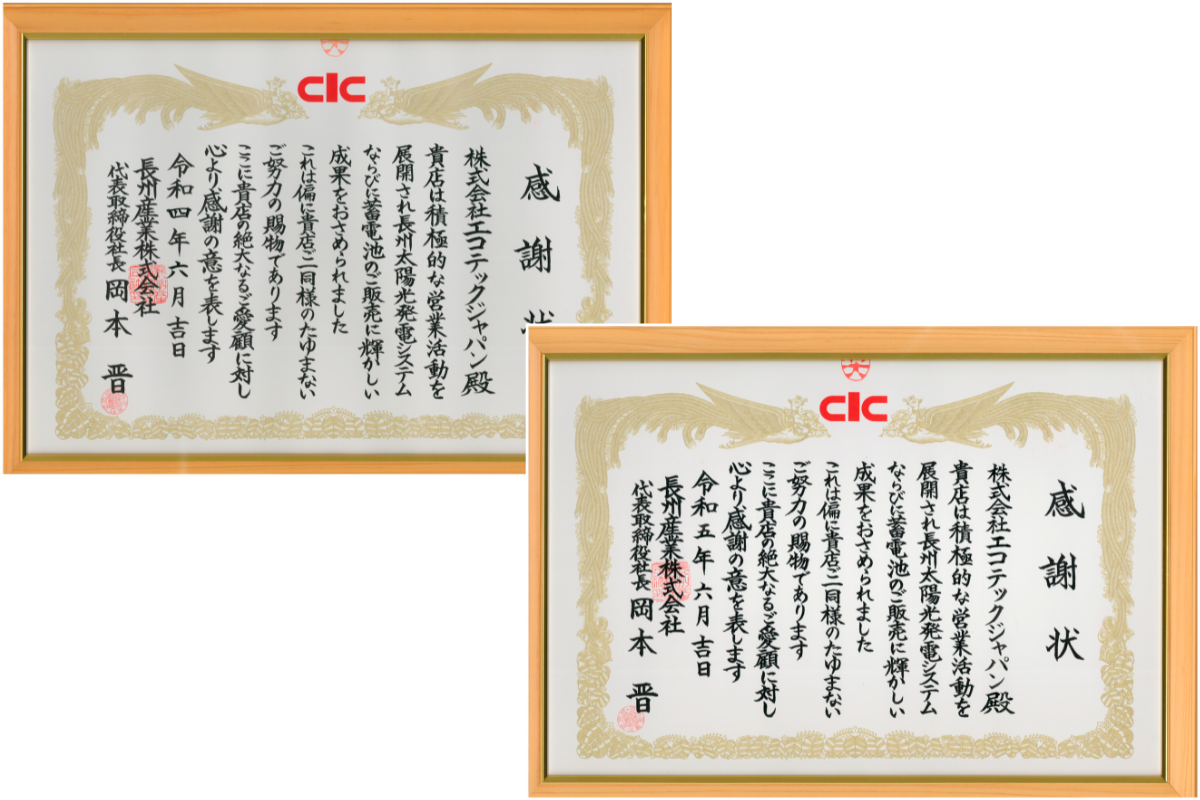 CIC
感謝状
株式会社エコテックジャパン殿
貴店は積極的な営業活動を
展開され長州太陽光発電システム
ならびに蓄電池のご販売に輝かしい
成果をおさめられました
これは偏に貴店ご一同様のたゆまない
ご努力の賜物であります
ここに貴店の絶大なるご愛顧に対し
心より感謝の意を表します
令和四年六月吉日
長州産業株式会社
代表取締役社長 岡本 晋
CIC
感謝状
株式会社エコテックジャパン殿
貴店は積極的な営業活動を
展開され長州太陽光発電システム
ならびに蓄電池のご販売に輝かしい
成果をおさめられました
これは偏に貴店ご一同様のたゆまない
ご努力の賜物であります
ここに貴店の絶大なるご愛顧に対し
心より感謝の意を表します
令和五年六月吉日
長州産業株式会社
代表取締役社長 岡本 晋